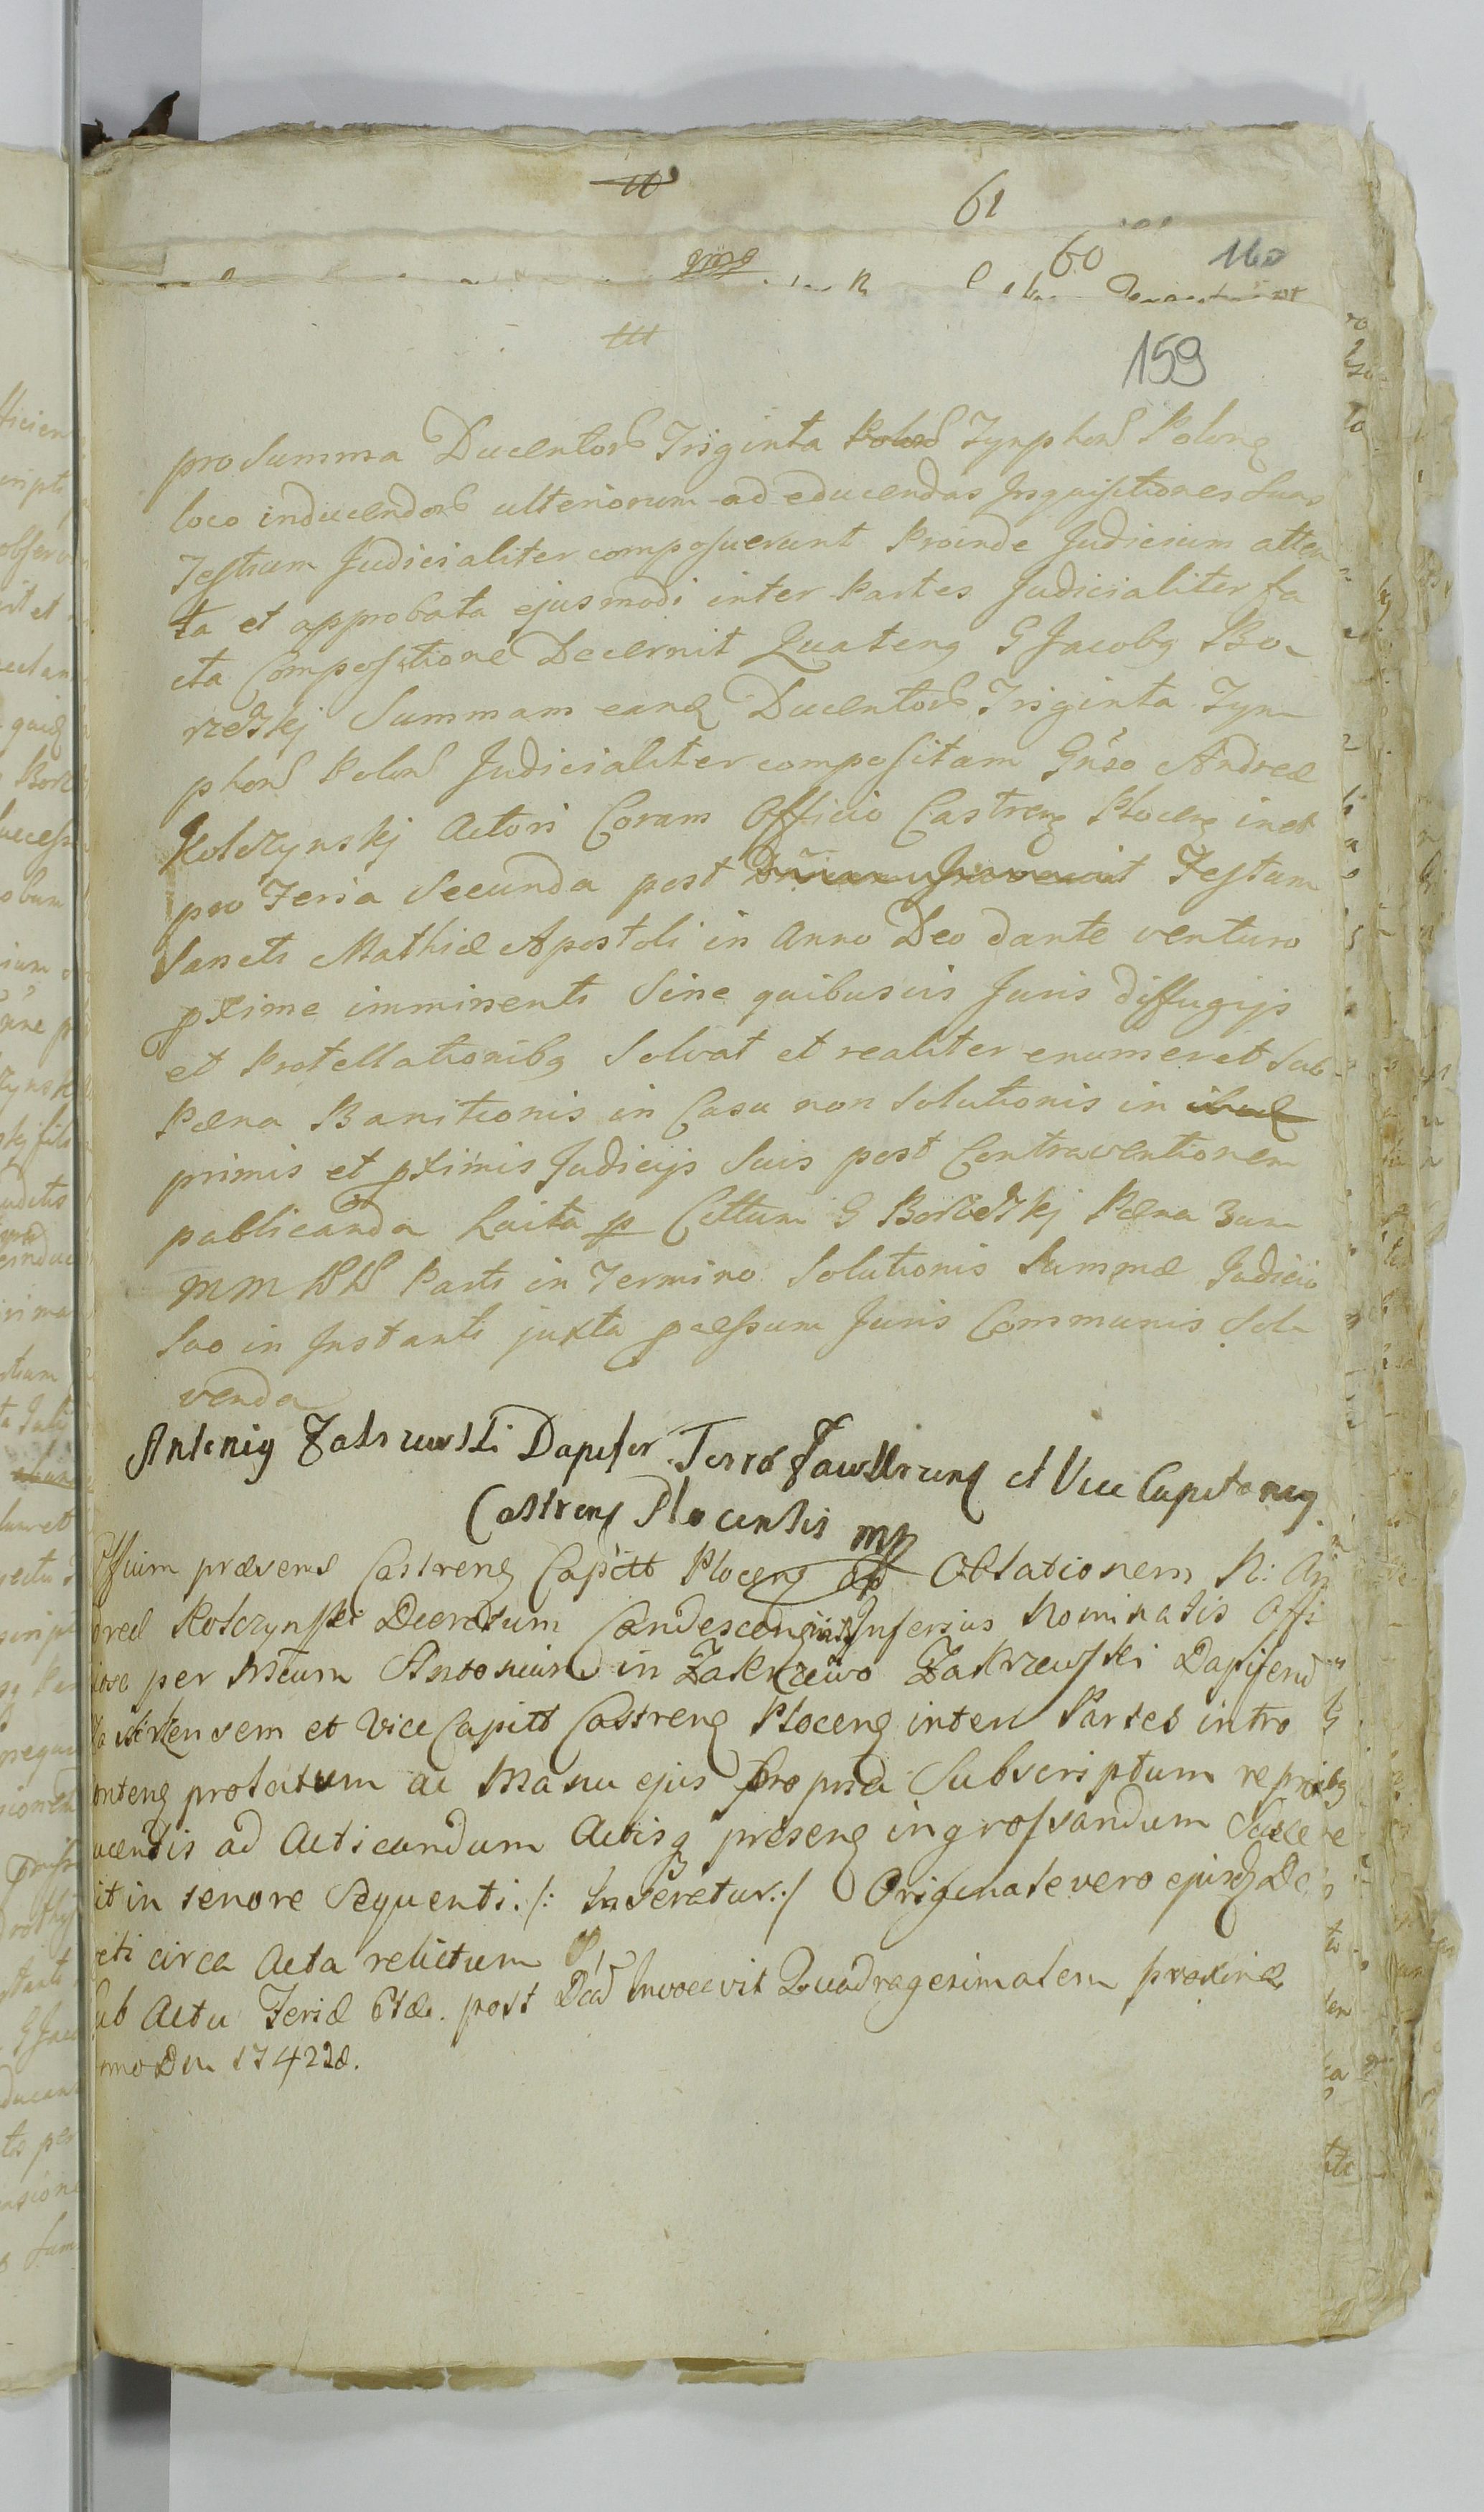 61
60
160
159
pro Summa Ducentorũ Triginta Polon̄ Tynphon̄ Polong
loco inducendorũ ulteriorum ad educendas Inquisitiones Suas
Testium Judicialiter composuerunt Proinde Judicium atten
ta et approbata ejusmodi inter Partes Judicialiter fa
cta Compositione Decernit Quateng G Jacobg Bo-
rzeskj Summam eanđ Ducentorũ Triginta Tyn-
phon̄ Polon̄ Judicialiter compositam Gnso Andreæ
Kolczynskj Actori Coram Officio Castreng Ploceng in et
pro Feria Secunda post Festum
Sancti Mathiæ Apostoli in Anno Deo dante venturo
pxime imminenti Sine quibusvis Juris diffugijs
et Protellationibg Solvat et realiter enumeret Sub
Pæna Banitionis in Casu non Solutionis in
primis et pximis Judicijs Suis post Contraventionem
publicanda Laita p Cittum G Borzeskj Pæna 3um
Parti in Termino Solutionis Summæ Judicio
Suo in Instanti juxta pcessum Juris Communis Sol-
venda
Antonig Zakrzewski Dapifer Terræ Zawkrzeng et Vice Capitaneg
Castreng Plocensis mp
Officium præsens Castreng Capitt Ploceng Ad Oblationem N: An
dreæ Kolczynski Decretum Condescen Inferius Nominatis Offi
iose per Meum Antonium in Zakrzewo Zakrzewski Dapiferũ
krzensem et Vice Capitt Castreng Ploceng inter Partes intro
onteng prolatum ac Manu ejus Propria Subscriptum
ucentis ad Acticandum Actisq preseng ingrossandum Suscepe
it in tenore Sequenti. /: Inseretur :/ Originale vero ejusđ De
reti circa Acta relictum
Sub Actu Feriæ 6tæ. post Invocavit Quadragesimalem proxima
nno Dni 1742